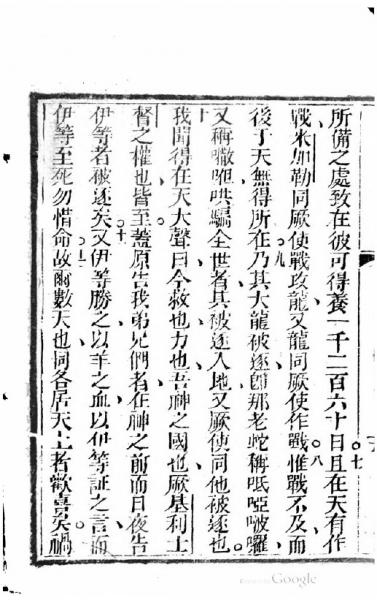 所備之處致在彼可得養一千二百六十日且在天有作
戰米加勒同厥使戰攻龍又龍同厥使作戰惟戰不及而
後于天無得所在乃其大龍被逐卽那老蛇稱呧啞啵囉
又稱㘔呾哄騙全世者其被逐入地又厥使同他被逐也
我聞得在天大聲曰今救也力也吾神之國也厥基利士
督之權也皆至蓋原告我弟兄們者在神之前而日夜告
伊等者被逐矣又伊等勝之以羊之血以伊等証之言而
伊等至死勿惜命故爾數天也同各居天上者歡喜矣禍
七
八
九
十
Google